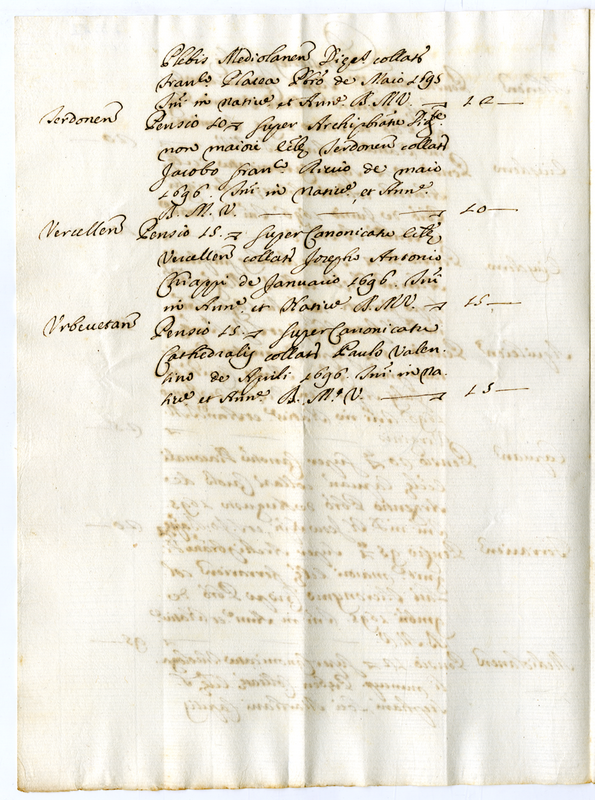 Plebis Mediolanen Dioc. collati
Franc.o Platea Pbro de Maio 1695
Sni in Nativ.e et Ann.e B.M.V. 12
Terdonen Pensio 10 super Archipbratu
non maiori Eccl. Terdonen collati
Jacobo Franc.o Riccio de maio
1696. Sni in Nativ.e et Ann.e
B. M. V. 10
Vercellen Pensio 15. super Canonicatu Eccl.
Vercellen collati Josepho Antonio
Chiappi de Januario 1696. Sni
in Ann.e et Nativ.e B.M.V. 15
Vrbevetan Pensio 15. super Canonicatu
Cathedralis collati Paulo Valen-
tino de Aprili 1696. Sni in Na-
tiv.e et Ann.e B. M. V. 15